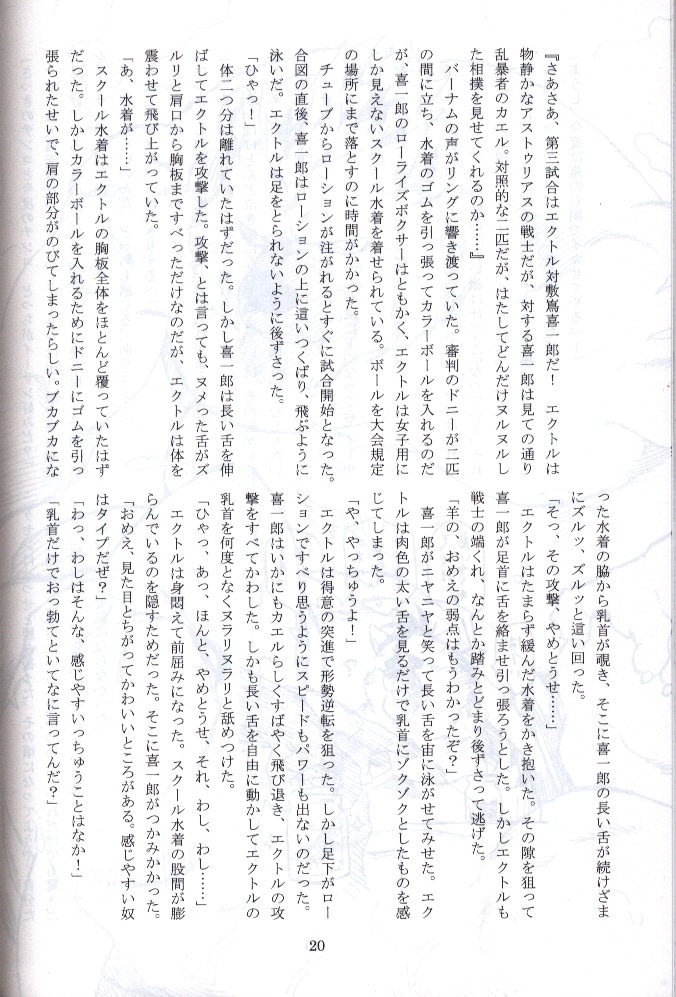 『さあさあ、第三試合はエクトル対敷嶌喜一郎だ！　エクトルは
物静かなアストゥリアスの戦士だが、対する喜一郎は見ての通り
乱暴者のカエル。対照的な二匹だが、はたしてどんだけヌルヌルし
た相撲を見せてくれるのか……』
　バーナムの声がリングに響き渡っていた。審判のドニーが二匹
の間に立ち、水着のゴムを引っ張ってカラーボールを入れるのだ
が、喜一郎のローライズボクサーはともかく、エクトルは女子用に
しか見えないスクール水着を着せられている。ボールを大会規定
の場所にまで落とすのに時間がかかった。
　チューブからローションが注がれるとすぐに試合開始となった。
合図の直後、喜一郎はローションの上に這いつくばり、飛ぶように
泳いだ。エクトルは足をとられないように後ずさった。
「ひゃっ！」
　体二つ分は離れていたはずだった。しかし喜一郎は長い舌を伸
ばしてエクトルを攻撃した。攻撃、とは言っても、ヌメった舌がズ
ルリと肩口から胸板まですべっただけなのだが、エクトルは体を
震わせて飛び上がっていた。
「あ、水着が……」
　スクール水着はエクトルの胸板全体をほとんど覆っていたはず
だった。しかしカラーボールを入れるためにドニーにゴムを引っ
張られたせいで、肩の部分がのびてしまったらしい。ブカブカにな
った水着の脇から乳首が覗き、そこに喜一郎の長い舌が続けざま
にズルッ、ズルッと這い回った。
「そっ、その攻撃、やめとうせ……」
　エクトルはたまらず緩んだ水着をかき抱いた。その隙を狙って
喜一郎が足首に舌を絡ませ引っ張ろうとした。しかしエクトルも
戦士の端くれ、なんとか踏みとどまり後ずさって逃げた。
「羊の、おめえの弱点はもうわかったぞ？」
　喜一郎がニヤニヤと笑って長い舌を宙に泳がせてみせた。エク
トルは肉色の太い舌を見るだけで乳首にゾクゾクとしたものを感
じてしまった。
「や、やっちゅうよ！」
　エクトルは得意の突進で形勢逆転を狙った。しかし足下がロー
ションですべり思うようにスピードもパワーも出ないのだった。
喜一郎はいかにもカエルらしくすばやく飛び退き、エクトルの攻
撃をすべてかわした。しかも長い舌を自由に動かしてエクトルの
乳首を何度となくヌラリヌラリと舐めつけた。
「ひゃっ、あっ、ほんと、やめとうせ、それ、わし、わし……」
　エクトルは身悶えて前屈みになった。スクール水着の股間が膨
らんでいるのを隠すためだった。そこに喜一郎がつかみかかった。
「おめえ、見た目とちがってかわいいところがある。感じやすい奴
はタイプだぜ？」
「わっ、わしはそんな、感じやすいっちゅうことはなか！」
「乳首だけでおっ勃てといてなに言ってんだ？」
20